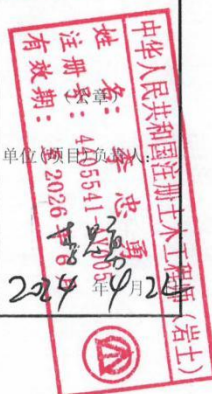 中华人民共和国注册土木工程师(岩土)
姓 名: 李忠勇
注册号: 4405541-AY005
有效期: 至2026年6月
(公章)
单位(项目)负责人:
2024 年 4 月 22